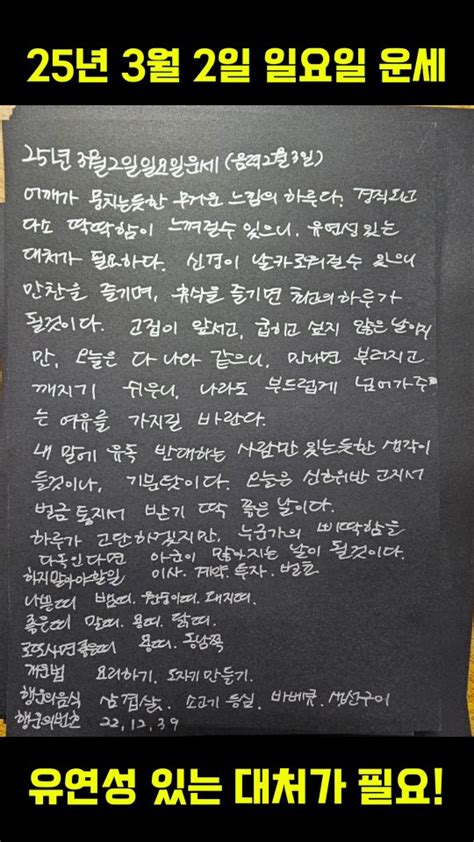 25년 3월 2일 일요일 운세
25년 3월 2일 일요일 운세 (음력 2월 3일)
어깨가 뭉치는듯한 무거운 느낌의 하루다. 경직되고
다소 딱딱함이 느껴질수 있으니, 유연성 있는
대처가 필요하다. 신경이 날카로워질수 있으니
만찬을 즐기며, 휴식을 즐기면 최고의 하루가
될것이다. 고집이 앞서고, 굽히고 싶지 않은 날이지
만, 오늘은 다 나와 같으니, 만나면 부러지고
깨지기 쉬우니, 나라도 부드럽게 넘어가주
는 여유를 가지길 바란다.
내 말에 유독 반대하는 사람만 있는듯한 생각이
들것이나, 기분탓이다. 오늘은 신호위반 고지서
벌금 통지서 받기 딱 좋은 날이다.
하루가 고단하겠지만, 누군가의 삐딱함을
다독인다면 아군이 많아지는 날이 될것이다.
하지말아야할일 이사. 계약. 투자.
나쁜띠 뱀띠. 원숭이띠. 돼지띠.
좋은띠 말띠. 용띠. 닭띠.
로또사면좋은띠 용띠. 동남쪽
개운법 요리하기, 도자기 만들기.
행운의음식 삼겹살, 소고기 등심, 바베큐, 생선구이
행운의번호 22, 12, 39
유연성 있는 대처가 필요!